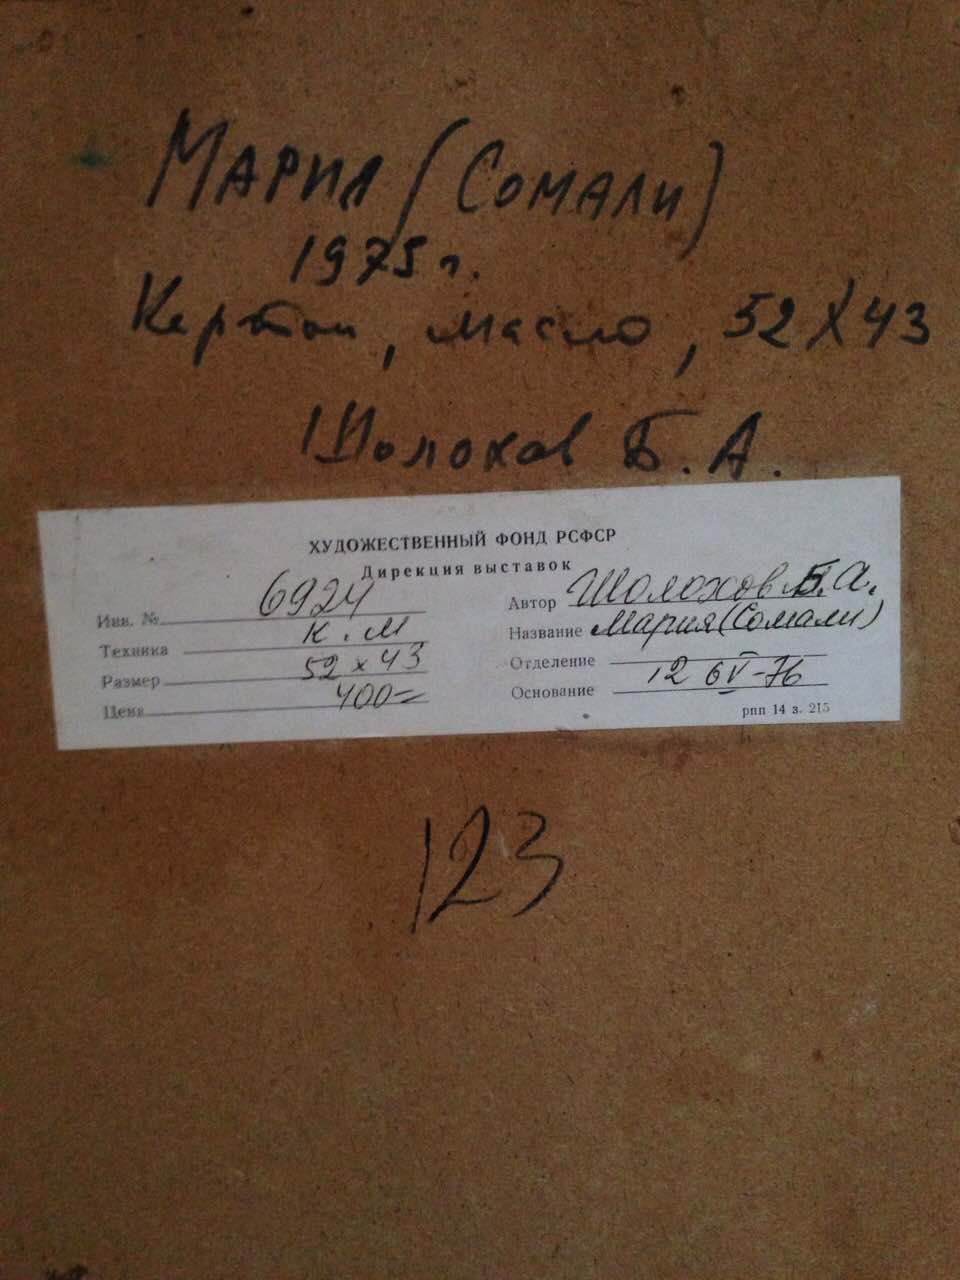 Мария (Сомали)
1975 г.
Картон, масло, 52х43
Шолохов Б. А.
ХУДОЖЕСТВЕННЫЙ ФОНД РСФСР
Дирекция выставок
Инв. № 6924
Техника К. М
Размер 52 х 43
Цена 400=
Автор Шолохов Б. А.
Название Мария (Сомали)
Отделение
Основание 12 6 V-76
рпп 14 з. 215
123